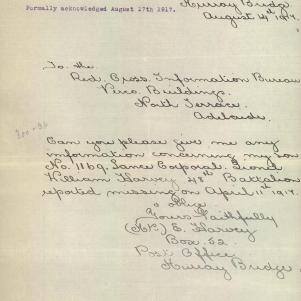 Formally acknowledged August 27th 1917.
Murray Bridge.
August 14th 1917.
To the
Red Cross Information Bureau
Verco Buildings.
North Terrace.
Adelaide.
Can you please give me any
information concerning my son
No. 1169. Lance Corporal. Lionel
William Harvey 48th Battalion
reported missing on April 11th 1917.
& oblige
Yours Faithfully
E. Harvey
Box. 52.
Post Office
Murray Bridge.